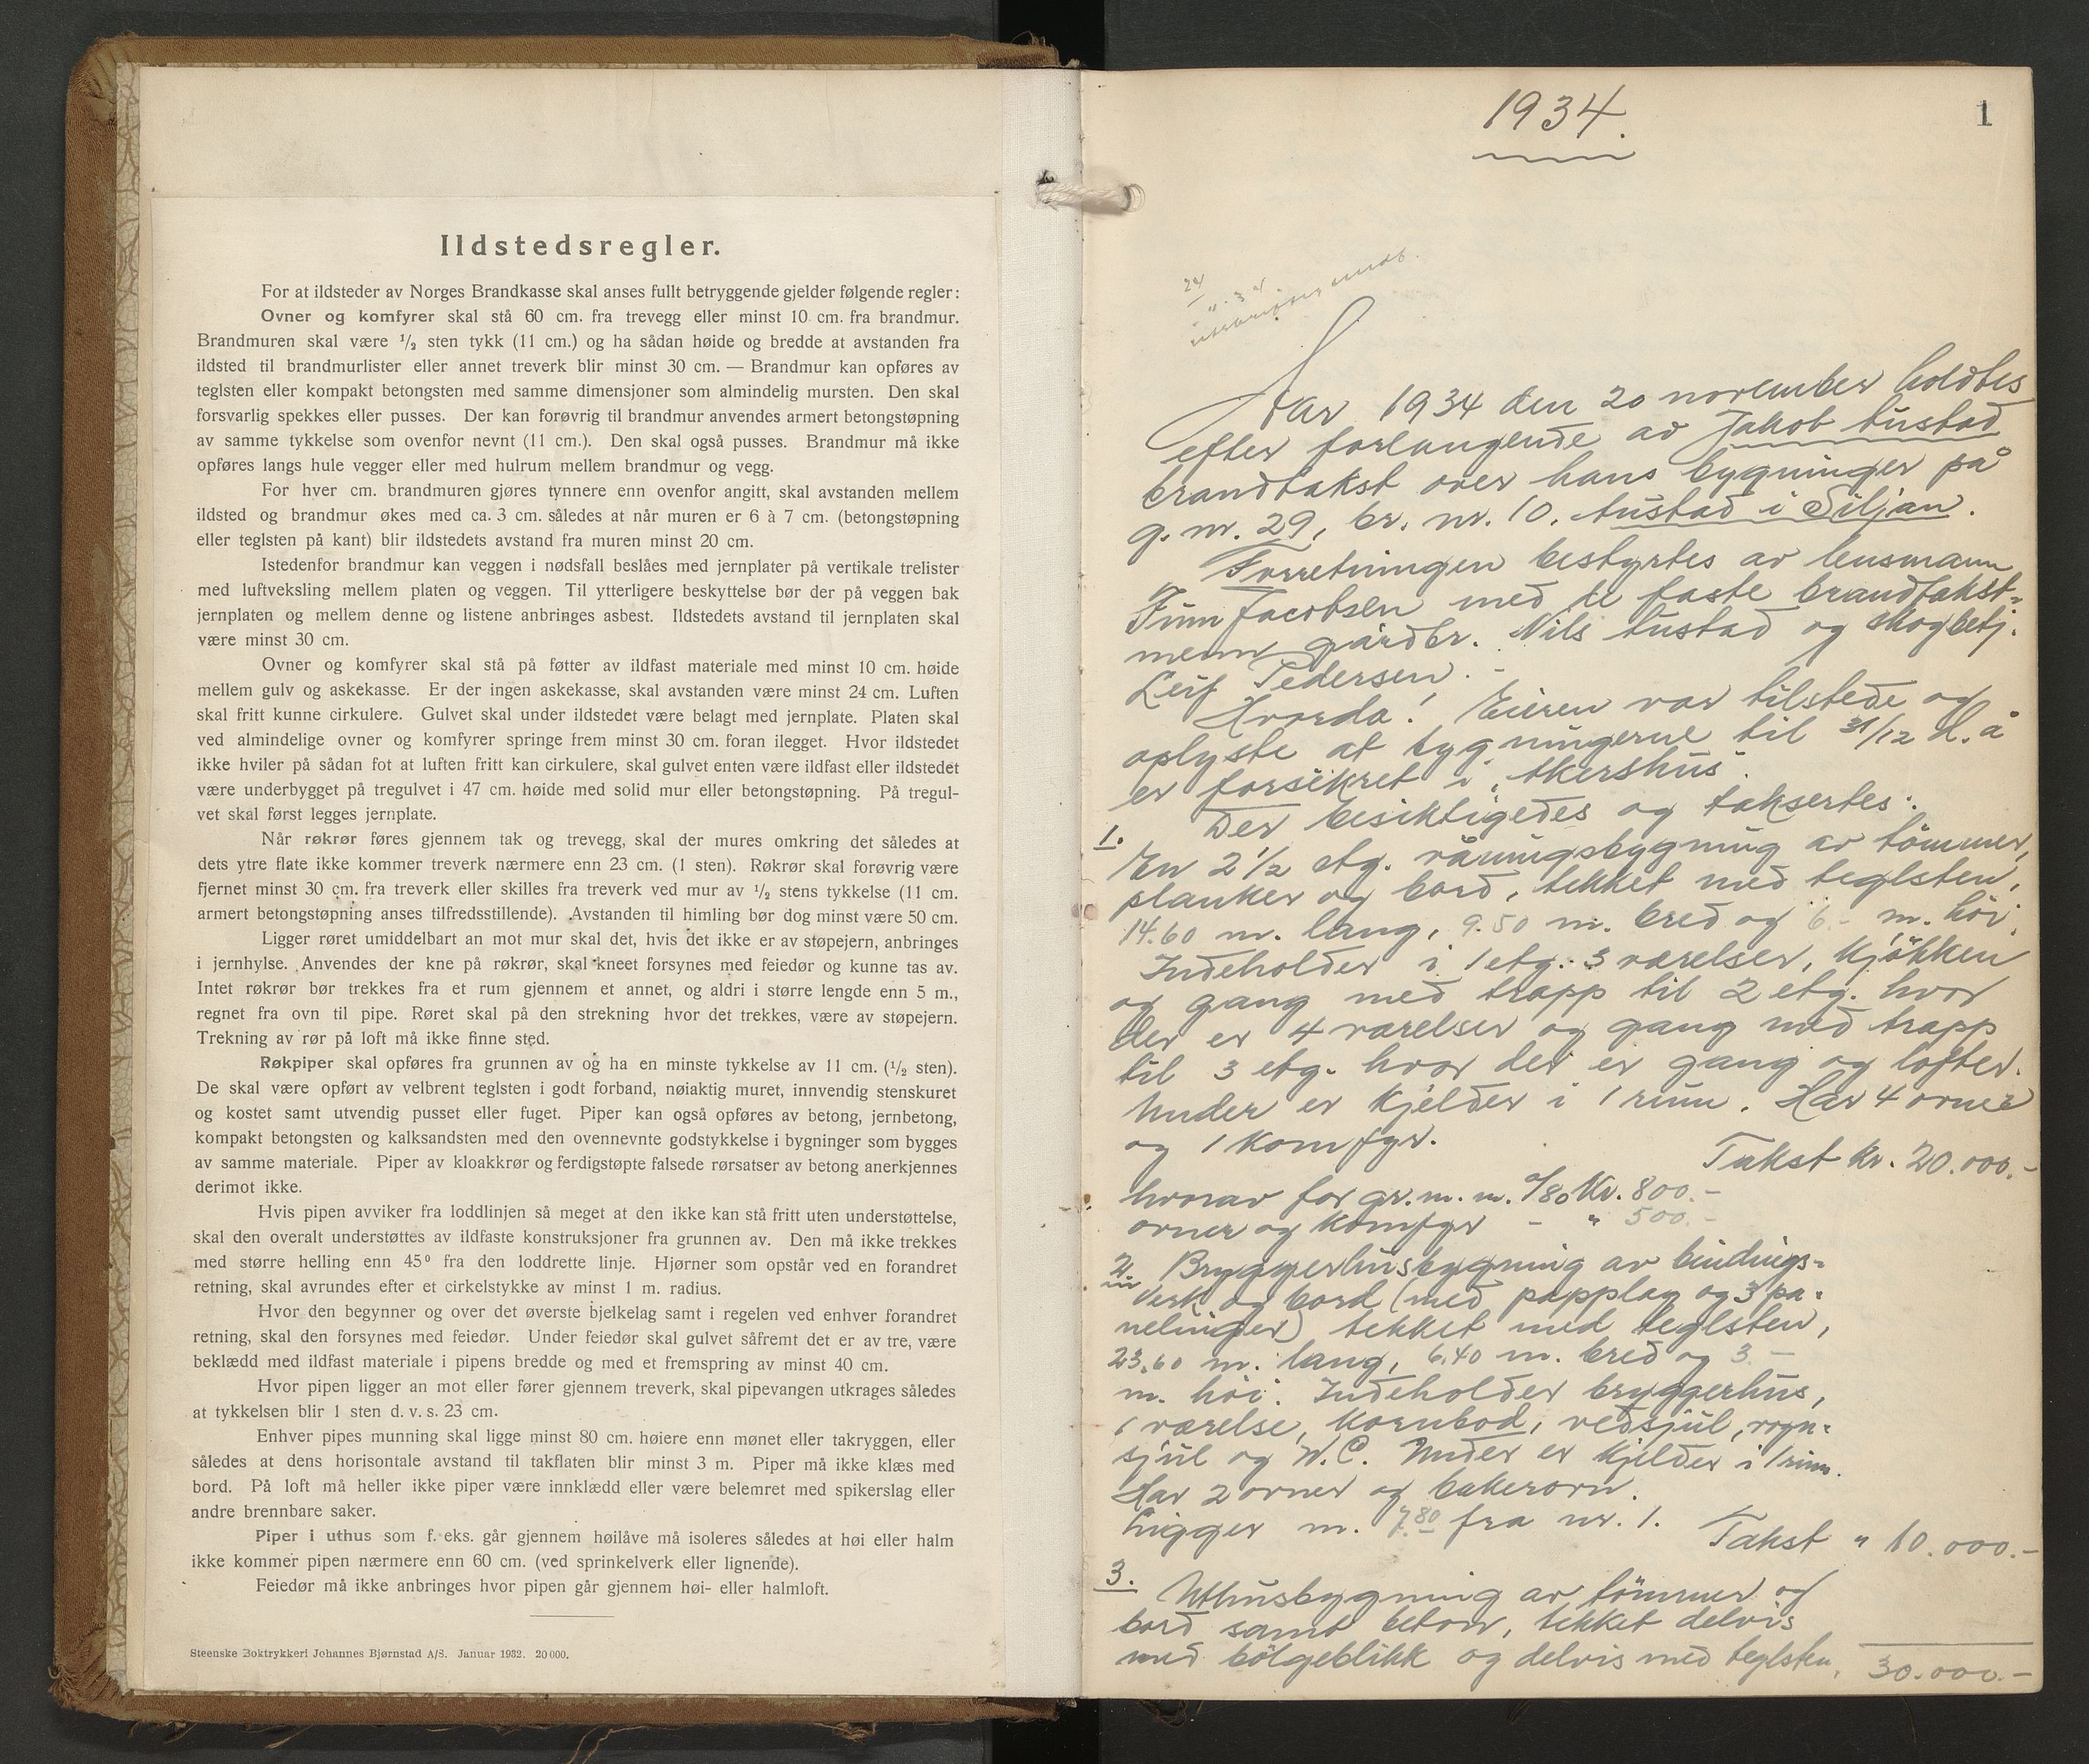 Ildstedsregler.
For at ildsteder av Norges Brandkasse skal anses fullt betryggende gjelder følgende regler:
Ovner og komfyrer skal stå 60 cm. fra trevegg eller minst 10 cm. fra brandmur.
Brandmuren skal være 1/2 sten tykk (11 cm.) og ha sådan høide og bredde at avstanden fra
ildsted til brandmurlister eller annet treverk blir minst 30 cm. — Brandmur kan opføres av
teglsten eller kompakt betongsten med samme dimensjoner som almindelig mursten. Den skal
forsvarlig spekkes eller pusses. Der kan forøvrig til brandmur anvendes armert betongstøpning
av samme tykkelse som ovenfor nevnt (11 cm.). Den skal også pusses. Brandmur må ikke
opføres langs hule vegger eller med hulrum mellem brandmur og vegg.
For hver cm. brandmuren gjøres tynnere enn ovenfor angitt, skal avstanden mellem
ildsted og brandmur økes med ca. 3 cm. således at når muren er 6 à 7 cm. (betongstøpning
eller teglsten på kant) blir ildstedets avstand fra muren minst 20 cm.
Istedenfor brandmur kan veggen i nødsfall beslåes med jernplater på vertikale trelister
med luftveksling mellem platen og veggen. Til ytterligere beskyttelse bør der på veggen bak
jernplaten og mellem denne og listene anbringes asbest. Ildstedets avstand til jernplaten skal
være minst 30 cm.
Ovner og komfyrer skal stå på føtter av ildfast materiale med minst 10 cm. høide
mellem gulv og askekasse. Er der ingen askekasse, skal avstanden være minst 24 cm. Luften
skal fritt kunne cirkulere. Gulvet skal under ildstedet være belagt med jernplate. Platen skal
ved almindelige ovner og komfyrer springe frem minst 30 cm. foran ilegget. Hvor ildstedet
ikke hviler på sådan fot at luften fritt kan cirkulere, skal gulvet enten være ildfast eller ildstedet
være underbygget på tregulvet i 47 cm. høide med solid mur eller betongstøpning. På tregul-
vet skal først legges jernplate.
Når røkrør føres gjennem tak og trevegg, skal der mures omkring det således at
dets ytre flate ikke kommer treverk nærmere enn 23 cm. (1 sten). Røkrør skal forøvrig være
fjernet minst 30 cm. fra treverk eller skilles fra treverk ved mur av 1/2 stens tykkelse (11 cm.
armert betongstøpning anses tilfredsstillende). Avstanden til himling bør dog minst være 50 cm.
Ligger røret umiddelbart an mot mur skal det, hvis det ikke er av støpejern, anbringes
i jernhylse. Anvendes der kne på røkrør, skal kneet forsynes med feiedør og kunne tas av.
Intet røkrør bør trekkes fra et rum gjennem et annet, og aldri i større lengde enn 5 m.,
regnet fra ovn til pipe. Røret skal på den strekning hvor det trekkes, være av støpejern.
Trekning av rør på loft må ikke finne sted.
Røkpiper skal opføres fra grunnen av og ha en minste tykkelse av 11 cm. (1/2 sten).
De skal være opført av velbrent teglsten i godt forband, nøiaktig muret, innvendig stenskuret
og kostet samt utvendig pusset eller fuget. Piper kan også opføres av betong, jernbetong,
kompakt betongsten og kalksandsten med den ovennevnte godstykkelse i bygninger som bygges
av samme materiale. Piper av kloakkrør og ferdigstøpte falsede rørsatser av betong anerkjennes
derimot ikke.
Hvis pipen avviker fra loddlinjen så meget at den ikke kan stå fritt uten understøttelse,
skal den overalt understøttes av ildfaste konstruksjoner fra grunnen av. Den må ikke trekkes
med større helling enn 45° fra den loddrette linje. Hjørner som opstår ved en forandret
retning, skal avrundes efter et cirkelstykke av minst 1 m. radius.
Hvor den begynner og over det øverste bjelkelag samt i regelen ved enhver forandret
retning, skal den forsynes med feiedør. Under feiedør skal gulvet såfremt det er av tre, være
beklædd med ildfast materiale i pipens bredde og med et fremspring av minst 40 cm.
Hvor pipen ligger an mot eller fører gjennem treverk, skal pipevangen utkrages således
at tykkelsen blir 1 sten d. v. s. 23 cm.
Enhver pipes munning skal ligge minst 80 cm. høiere enn mønet eller takryggen, eller
således at dens horisontale avstand til takflaten blir minst 3 m. Piper må ikke klæs med
bord. På loft må heller ikke piper være innklædd eller være belemret med spikerslag eller
andre brennbare saker.
Piper i uthus som f. eks. går gjennem høilåve må isoleres således at høi eller halm
ikke kommer pipen nærmere enn 60 cm. (ved sprinkelverk eller lignende).
Feiedør må ikke anbringes hvor pipen går gjennem høi- eller halmloft.
Steenske Boktrykkeri Johannes Bjørnstad A/S. Januar 1932. 20 000.
1934.
1
År 1934 den 20 november holdtes
efter forlangende av Jakob Austad
brandtakst over hans bygninger på
g. nr. 29, br. nr. 10, Austad i Siljan.
Forretningen bestyrtes av lensmann
Finn Jacobsen med de faste brandtakst-
menn gårdbr. Nils Austad og skogbetj.
Leif Pedersen. -
Hvorda! Eieren var tilstede og
oplyste at bygningerne til 31/12 d. å
er forsikret i "Akershus".
Der besiktigedes og taksertes:
1.
En 2 1/2 etg. våningsbygning av tømmer,
planker og bord, tekket med teglsten,
14.60 m. lang, 9.50 m. bred og 6.- m. høi.
Indeholder i 1 etg. 3 værelser, kjøkken
og gang med trapp til 2 etg. hvor
der er 4 værelser og gang med trapp
til 3 etg. hvor der er gang og lofter.
Under er kjelder i 1 rum. Har 4 ovner
og 1 komfyr.
Takst kr. 20.000.-
hvorav for gr.m. m. 80 Kr. 800.-
ovner og komfyr - " 500.-
2. Bryggerhusbygning av bindings-
verk og bord (med papplag og 3 pa-
nelinger) tekket med teglsten,
23.60 m. lang, 6.40 m. bred og 3.-
m. høi. Indeholder bryggerhus,
1 værelse, kornbod, vedsjul, vogn-
sjul og W.C. Under er kjelder i 1 rum.
Har 2 ovner og bakerovn.
Ligger m. 7.80 fra nr. 1.
Takst " 10.000.-
3.
Uthusbygning av tømmer og
bord samt betong, tekket delvis
med bølgeblikk og delvis med teglsten,
30.000.-